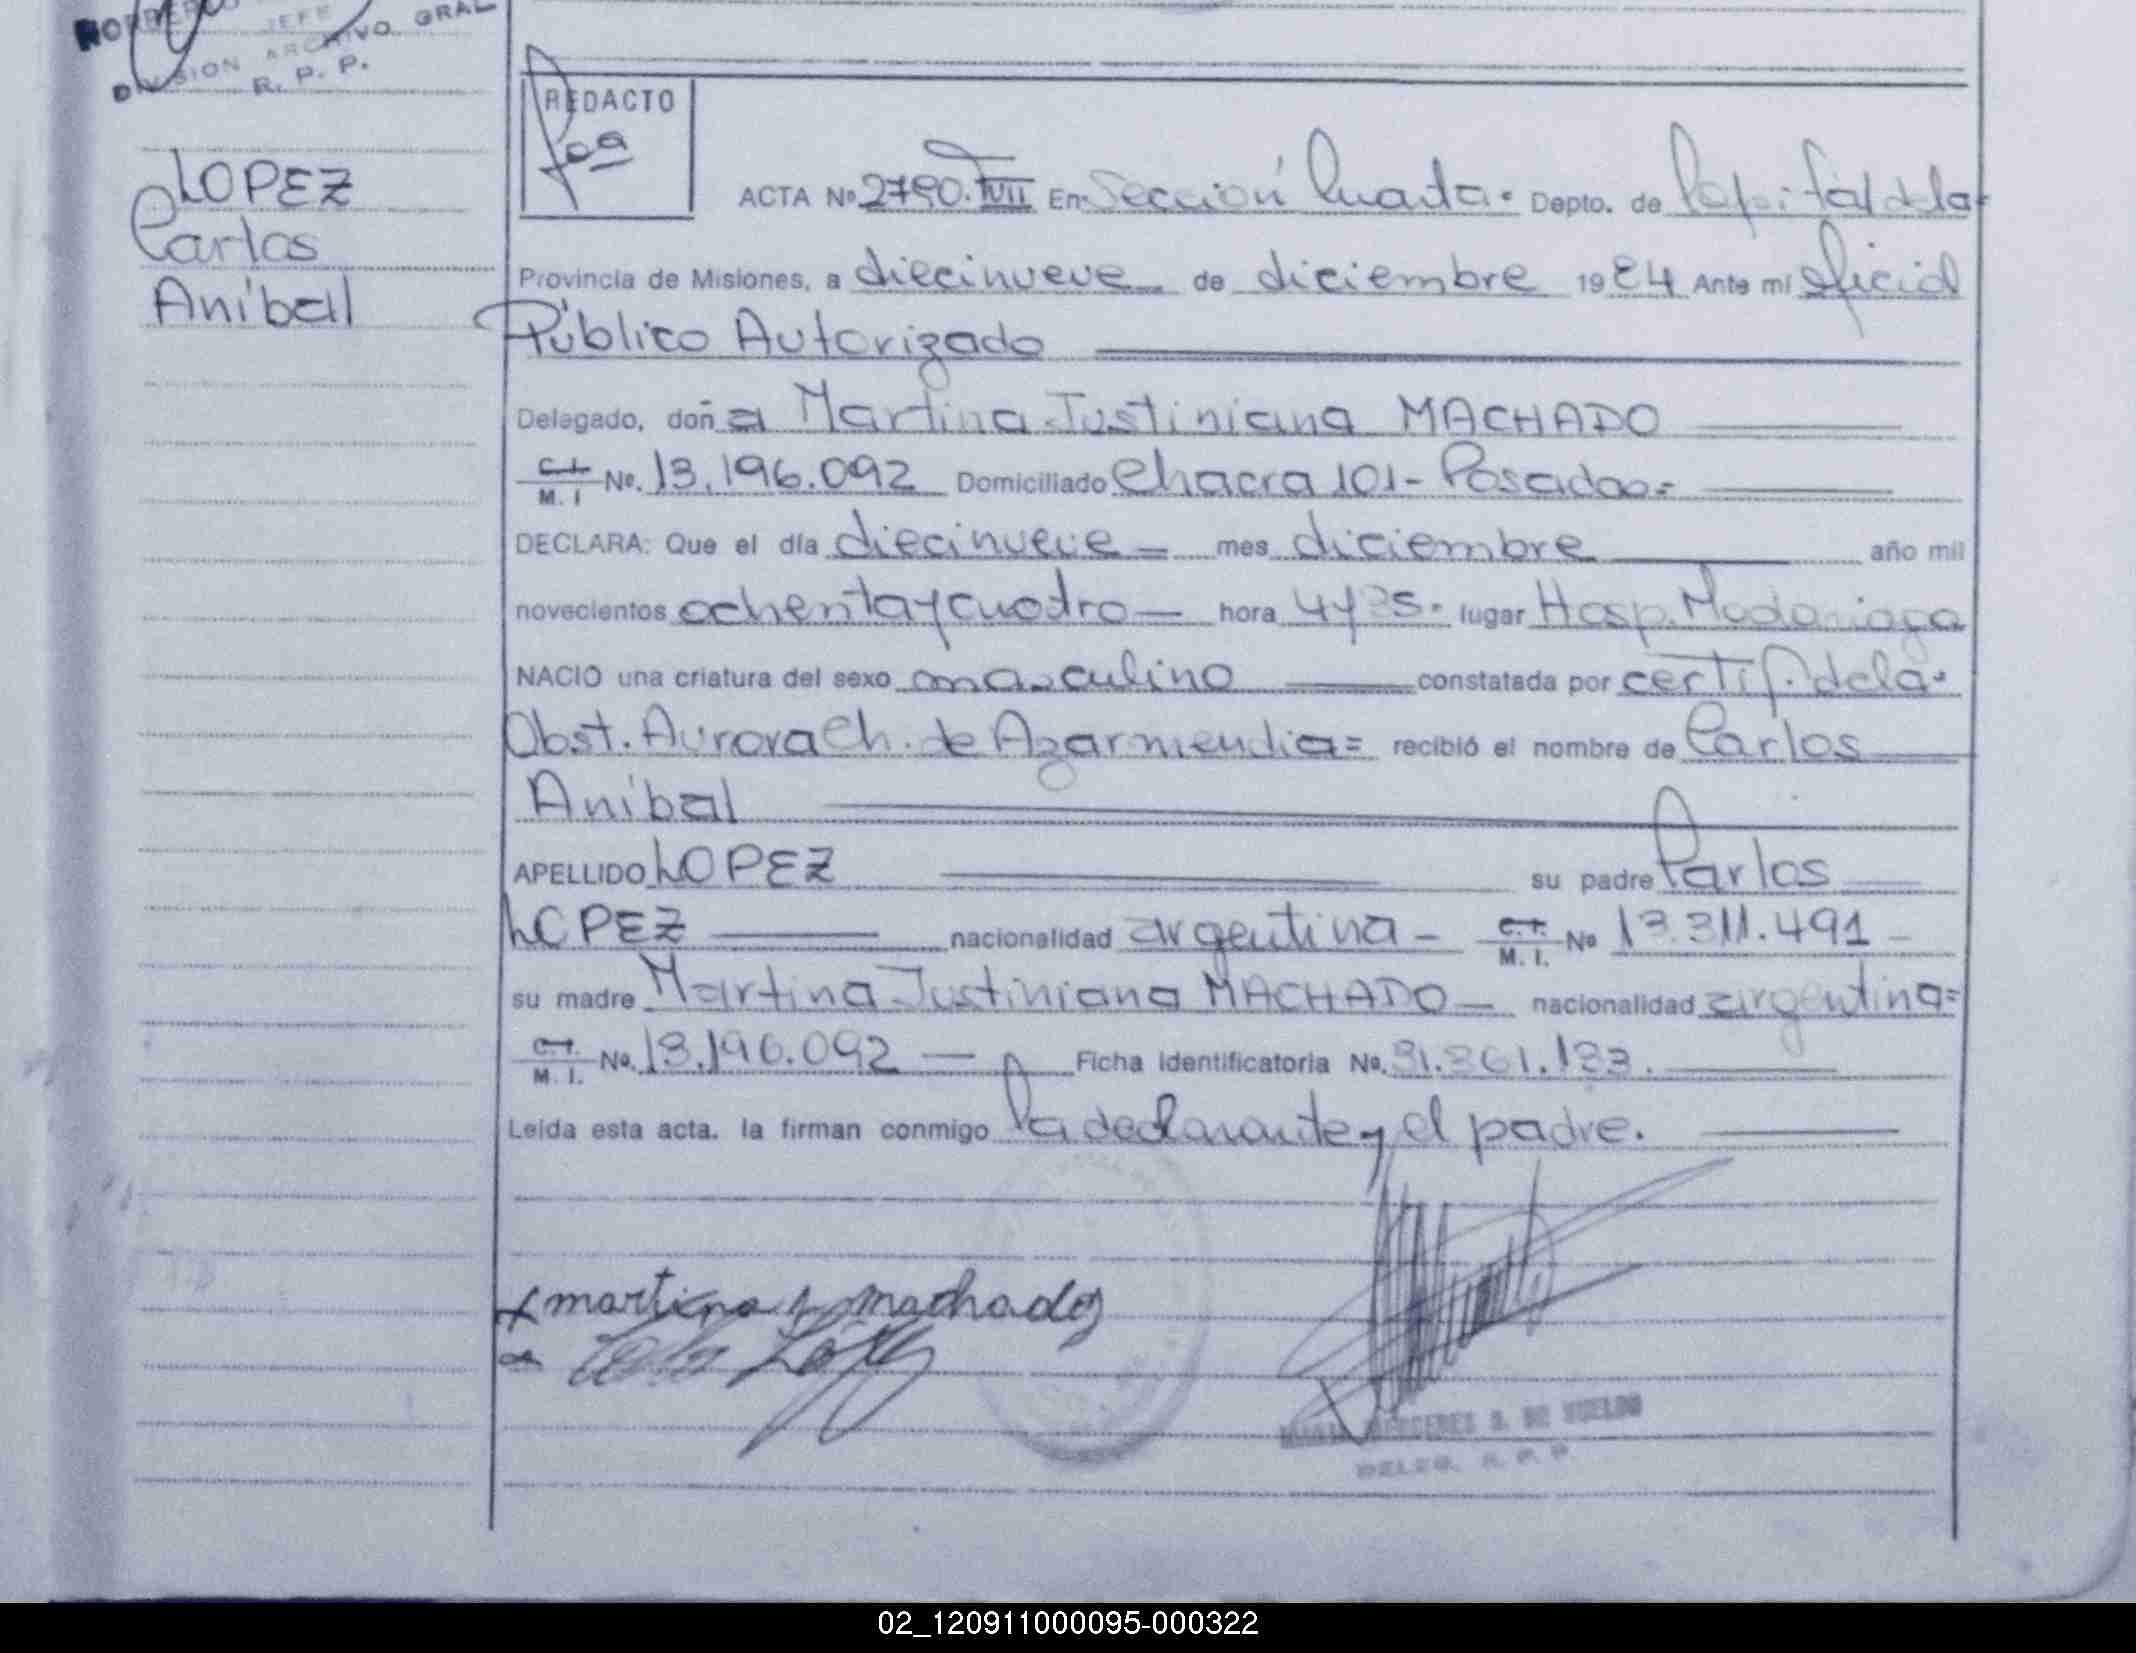 JEFE
DIVISION ARCHIVO GRAL
R. P. P.
LOPEZ
Carlos
Aníbal
REDACTO
ACTA Nº 2790. En Sección Cuarta. Depto. de Capital de la
Provincia de Misiones, a diecinueve de diciembre 1984 Ante mí oficial
Público Autorizado
Delegado, doña Martina Justiniana MACHADO
C.I. M. I No. 13.196.092 Domiciliado Chacra 101- Posadas=
DECLARA: Que el día diecinueve = mes diciembre año mil
novecientos ochenta y cuatro — hora 4 y 35. lugar Hosp. Madariaga
NACIO una criatura del sexo masculino constatada por certif. de la
Obst. Aurora Ch. de Azarmendia= recibió el nombre de Carlos
Aníbal
APELLIDO LOPEZ su padre Carlos
LOPEZ nacionalidad argentina - C.I. M. I. Nº 13.311.491 -
su madre Martina Justiniana MACHADO — nacionalidad argentina=
C.I. M. I. No. 13.196.092 — Ficha Identificatoria No.
Leída esta acta. la firman conmigo la declarante y el padre.
martina j machado
DELEG. R. P. P.
02_120911000095-000322